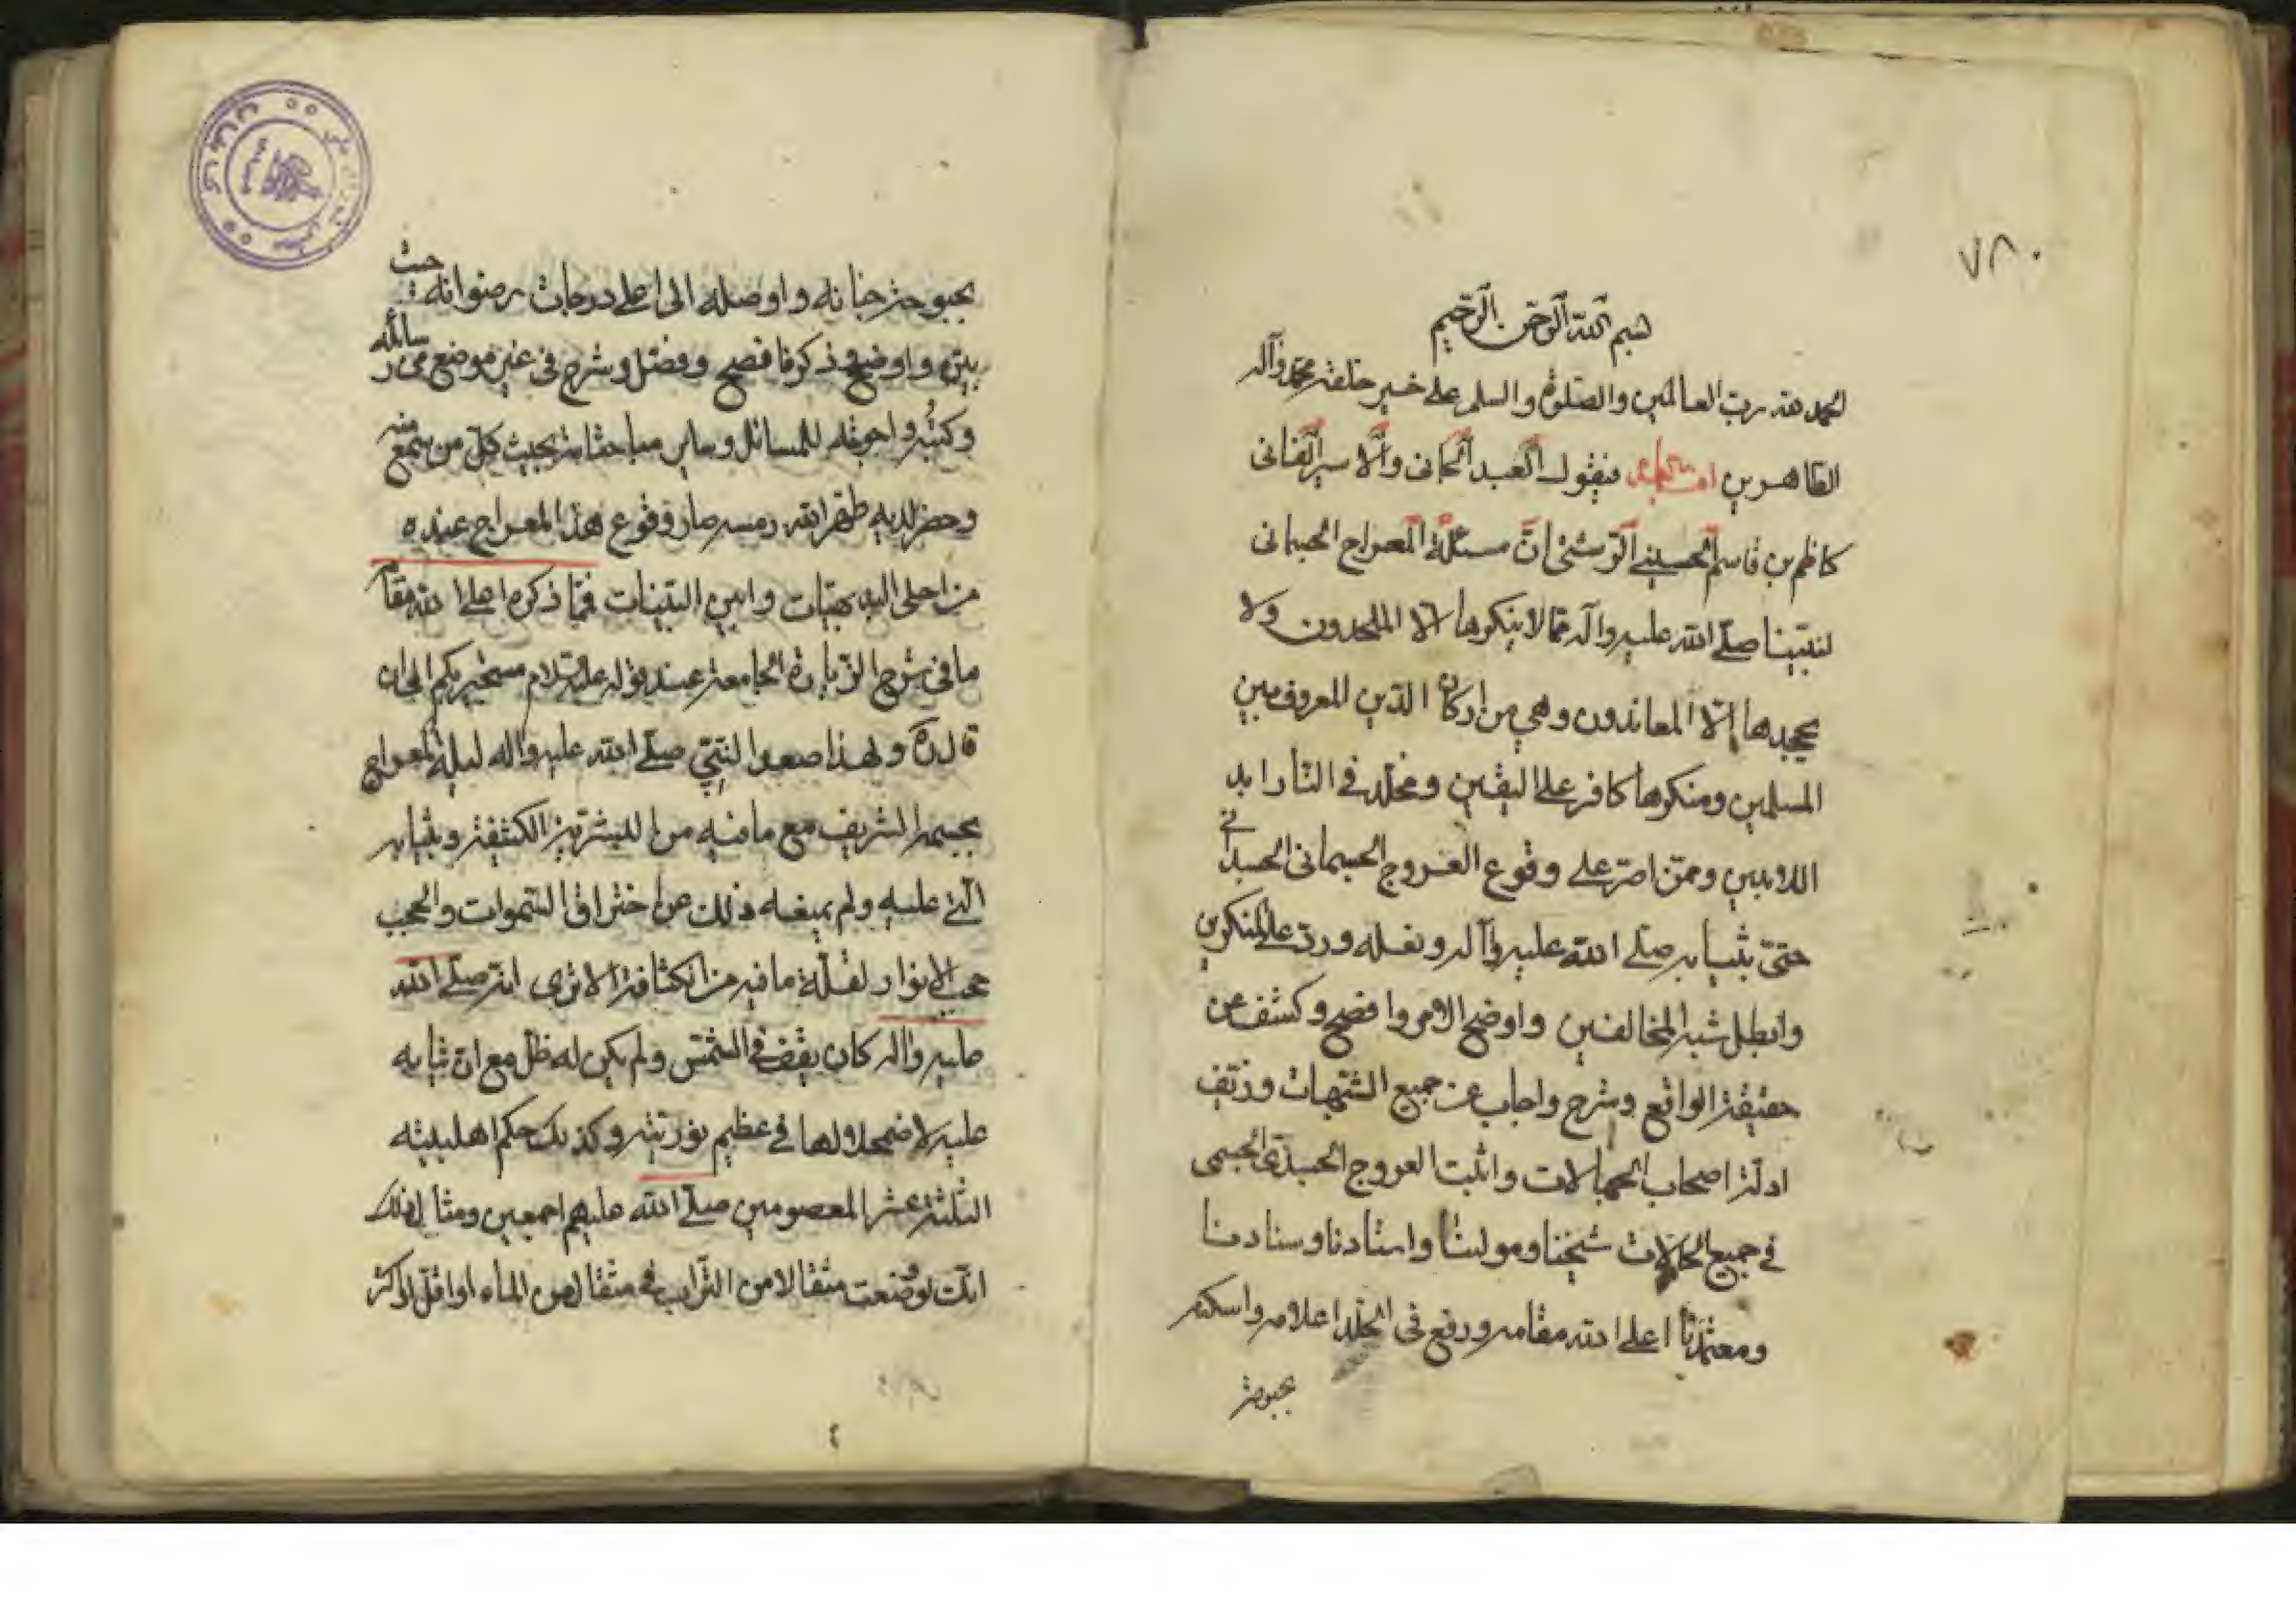 ٧٨٠
بسم الله الرحمن الرحيم
الحمد لله رب العالمين والصلوة والسلم على خير خلقه محمد وآله
الطاهرين اما بعد فيقول العبد الجانى والاسير الفانى
كاظم بن قاسم الحسينى الرشتى ان مسئلة المعراج الجسمانى
لنبينا صلى الله عليه وآله مما لا ينكرها الا الملحدون ولا
يجحدها الا المعاندون وهى من اركان الدين المعروف بين
المسلمين ومنكرها كافر على اليقين ومخلد فى النار ابد
الابدين وممن اصر على وقوع العروج الجسمانى الجسدانى
حتى بثيابه صلى الله عليه وآله ونعله ورد على المنكرين
وابطل شبه المخالفين واوضح الامر وافصح وكشف عن
حقيقة الواقع وشرح واجاب عن جميع الشبهات وزيف
ادلة اصحاب الجهالات واثبت العروج الجسدى الجسمى
فى جميع الحالات شيخنا ومولينا واستادنا وسنادنا
ومعتمدنا اعلى الله مقامه ورفع فى الخلد اعلامه واسكنه
بحبوحة
بحبوحة جنانه واوصله الى اعلى درجات رضوانه حيث
بين واوضح وذكر فافصح وفصل وشرح فى غير موضع من رسائله
وكتبه واجوبته للمسائل وساير مباحثاته بحيث كل من سمع منه
وحضر لديه طهر الله رمسه صار وقوع هذا المعراج عنده
من اجلى البديهيات وابين البينات فمما ذكره اعلى الله مقامه
ما فى شرح الزيارة الجامعة عند قوله عليه السلام مستجير بكم الى ان
قال ره ولهذا صعد النبى صلى الله عليه واله ليلة المعراج
بجسمه الشريف مع ما فيه من البشرية الكثيفة وبثيابه
التى عليه ولم يمنعه ذلك عن اختراق السموات والحجب
حجب الانوار لقلة ما فيه من الكثافة الا ترى انه صلى الله
عليه واله كان يقف فى الشمس ولم يكن له ظل مع ان ثيابه
عليه لاضمحلالها فى عظيم نوريته وكذلك حكم اهل بيته
الثلثة عشر المعصومين صلى الله عليهم اجمعين ومثال ذلك
انك لو وضعت مثقالا من التراب فى مثقال من الماء او اقل او اكثر